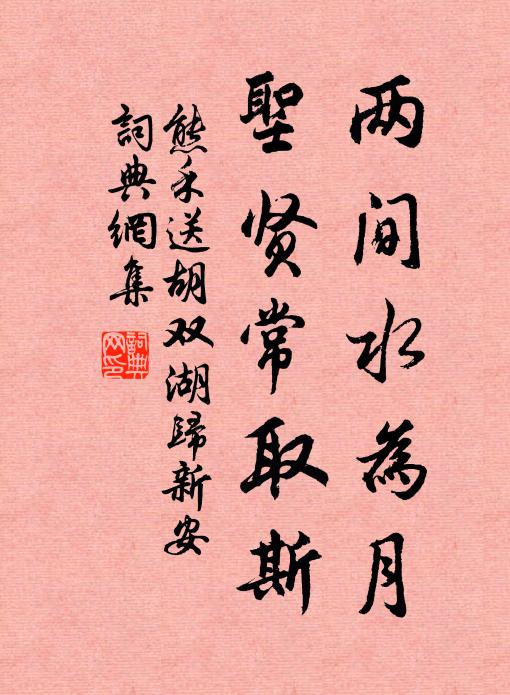 两间水为月
聖贤常取斯
熊禾送胡双湖歸新安
詞典網集
詞典
网印